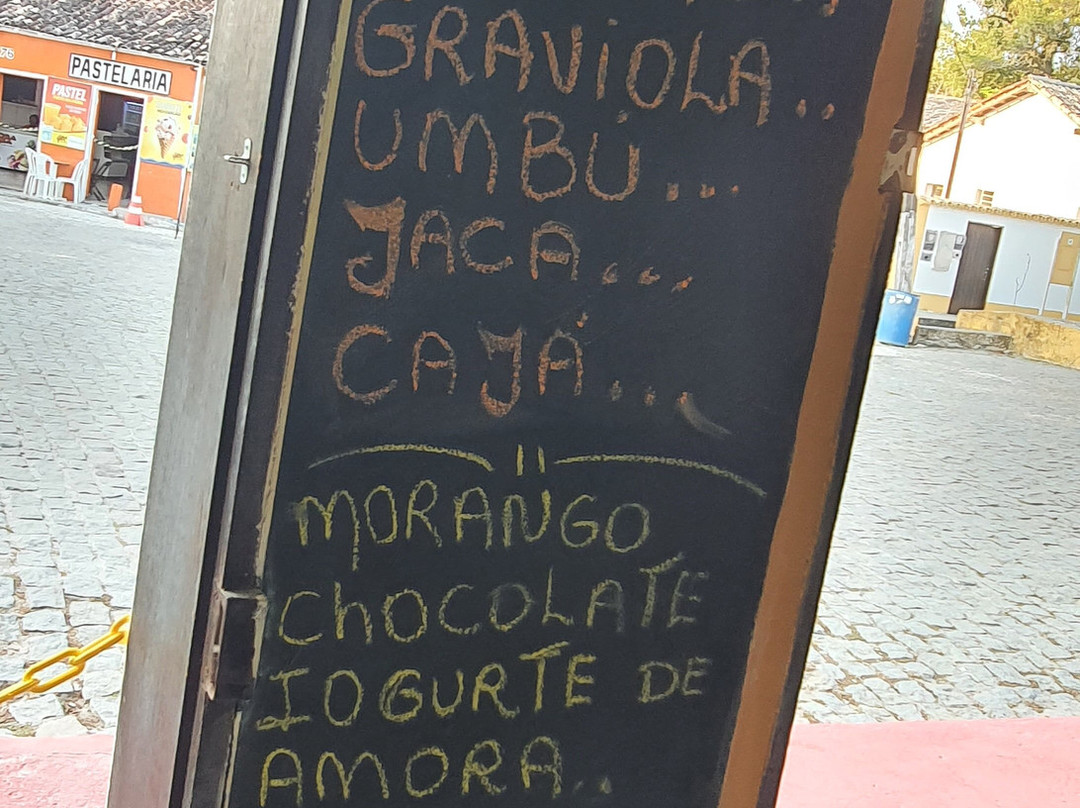 PASTELARIA
PASTEL
GRAVIOLA..
UMBÚ...
JACA...
CAJÁ...
MORANGO
ChOCOLATE
IOGURTE DE
AMORA..